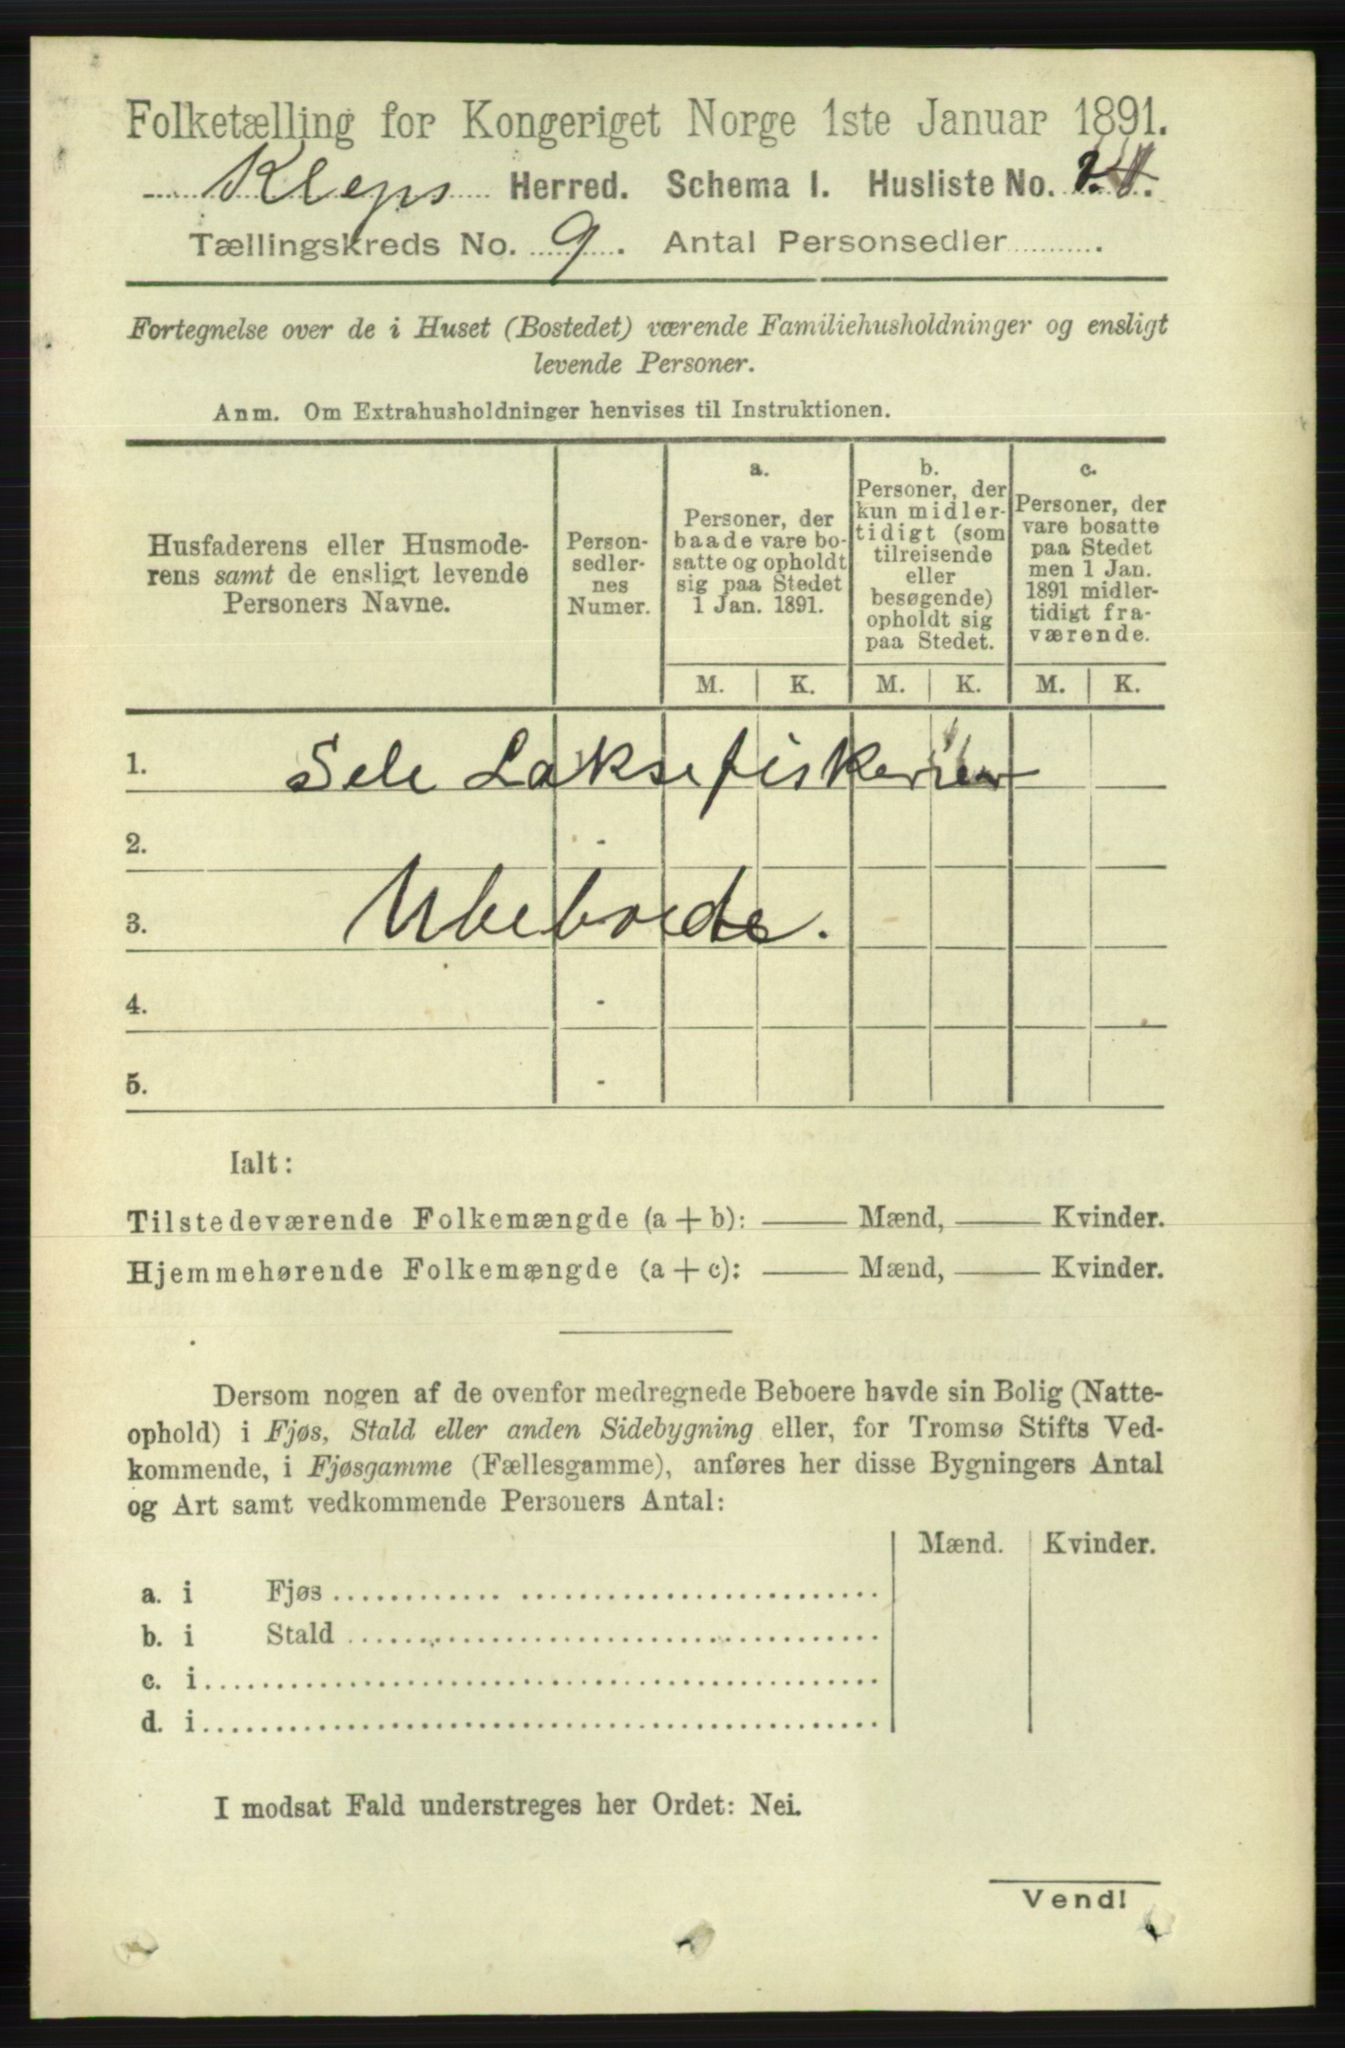 Folketælling for Kongeriget Norge 1ste Januar 1891.
Klepp Herred. Schema I. Husliste No.
Tællingskreds No. 9. Antal Personsedler .
Fortegnelse over de i Huset (Bostedet) værende Familiehusholdninger og ensligt
levende Personer.
Anm. Om Extrahusholdninger henvises til Instruktionen.
Husfaderens eller Husmode-
rens samt de ensligt levende
Personers Navne.
Person-
sedler-
nes
Numer.
a.
Personer, der
baade vare bo-
satte og opholdt
sig paa Stedet
1 Jan. 1891.
b.
Personer, der
kun midler-
tidigt (som
tilreisende
eller
besøgende)
opholdt sig
paa Stedet.
c.
Personer, der
vare bosatte
paa Stedet
men 1 Jan.
1891 midler-
tidigt fra-
værende.
M. K. M. K. M. K.
1. Sele Laksefiskerier
2.
3. Ubeboede.
4.
5.
Ialt:
Tilstedeværende Folkemængde (a + b): —— Mænd, —— Kvinder.
Hjemmehørende Folkemængde (a + c): —— Mænd, —— Kvinder.
Dersom nogen af de ovenfor medregnede Beboere havde sin Bolig (Natte-
ophold) i Fjøs, Stald eller anden Sidebygning eller, for Tromsø Stifts Ved-
kommende, i Fjøsgamme (Fællesgamme), anføres her disse Bygningers Antal
og Art samt vedkommende Personers Antal:
Mænd. Kvinder.
a. i Fjøs
b. i Stald
c. i
d. i
I modsat Fald understreges her Ordet: Nei.
Vend!